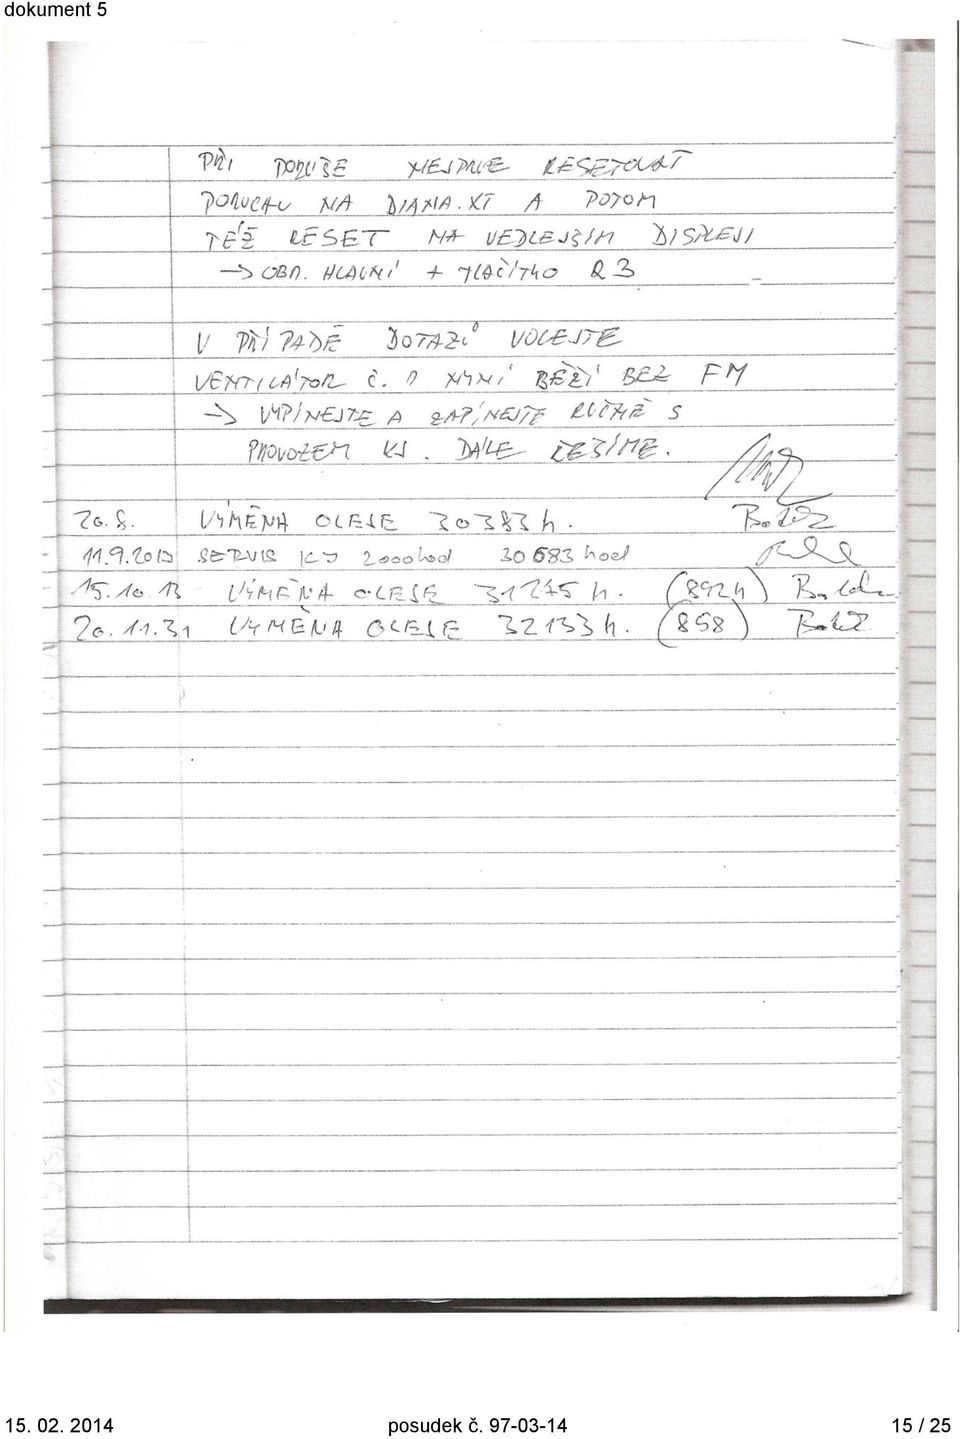 dokument 5
PŘI PORUŠE NEJPRVE RESETOVAT
PORUCHU NA DIANA.XT A POTOM
TÉŽ RESET NA VEDLEJŠÍM DISPLEJI
→ OBR. HLAVNÍ + TLAČÍTKO R3
V PŘÍPADĚ DOTAZŮ VOLEJTE
VENTILÁTOR Č. NYNÍ BĚŽÍ BEZ FM
→ VYPÍNEJTE A ZAPÍNEJTE RUČNĚ S
PROVOZEM KJ. DÁLE ŘEŠÍME.
20.8. VÝMĚNA OLEJE 30383 h.
11.9.2013 SERVIS KJ 2000hod 30683 hod
15.10.13 VÝMĚNA OLEJE 31275 h. (892h)
20.11.31 VÝMĚNA OLEJE 32133 h. (858)
15. 02. 2014 posudek č. 97-03-14 15 / 25